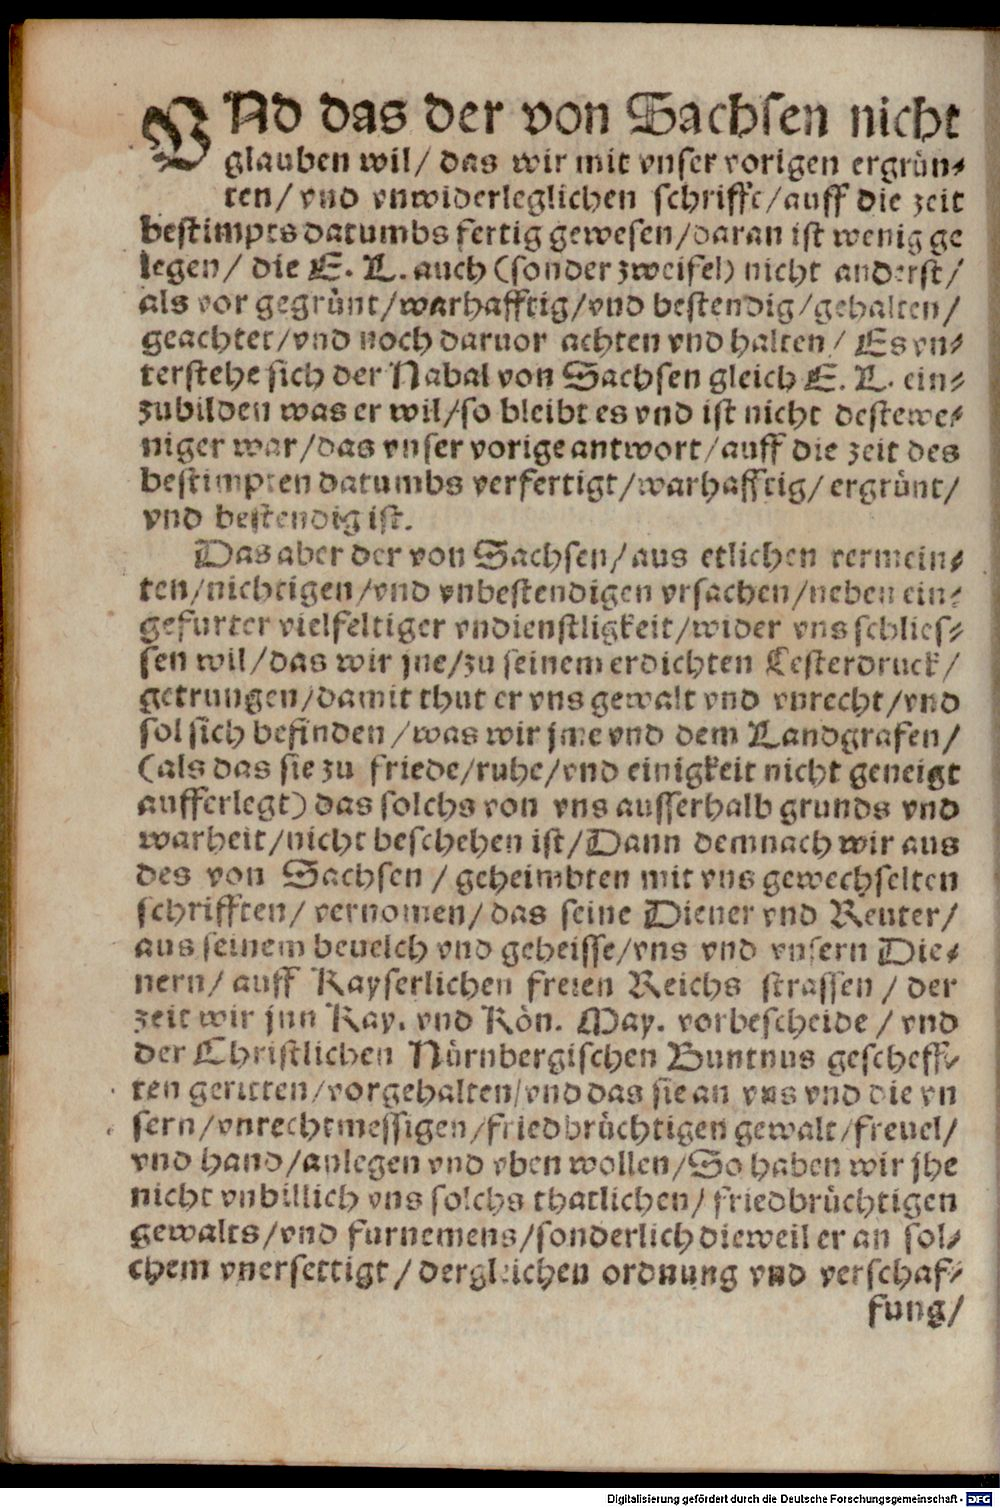 VNd das der von Sachsen nicht
glauben wil/ das wir mit vnser vorigen ergrün⸗
ten/ vnd vnwiderleglichen schrifft/auff die zeit
bestimpts datumbs fertig gewesen/daran ist wenig ge
legen/ die E. L. auch (sonder zweifel) nicht anderst/
als vor gegrünt/warhafftig/vnd bestendig/gehalten/
geachtet/vnd noch daruor achten vnd halten/ Es vn⸗
terstehe sich der Nabal von Sachsen gleich E. L. ein⸗
zubilden was er wil/so bleibt es vnd ist nicht destewe⸗
niger war/das vnser vorige antwort/auff die zeit des
bestimpten datumbs verfertigt/warhafftig/ ergrünt/
vnd bestendig ist.
Das aber der von Sachsen/aus etlichen vermein⸗
ten/nichtigen/vnd vnbestendigen vrsachen/neben ein⸗
gefurter vielfeltiger vndienstligkeit/wider vns schlies⸗
sen wil/das wir jne/zu seinem erdichten Lesterdruck/
getrungen/damit thut er vns gewalt vnd vnrecht/vnd
sol sich befinden/was wir jme vnd dem Landgrafen/
(als das sie zu friede/ruhe/vnd einigkeit nicht geneigt
aufferlegt) das solchs von vns ausserhalb grunds vnd
warheit/nicht beschehen ist/Dann demnach wir aus
des von Sachsen/ geheimbten mit vns gewechselten
schrifften/ vernomen/ das seine Diener vnd Reuter/
aus seinem beuelch vnd geheisse/vns vnd vnsern Die⸗
nern/ auff Kayserlichen freien Reichs strassen/ der
zeit wir jnn Kay. vnd Kön. May. vorbescheide/ vnd
der Christlichen Nürnbergischen Buntnus gescheff⸗
ten geritten/vorgehalten/vnd das sie an vns vnd die vn
sern/vnrechtmessigen/friedbrüchtigen gewalt/freuel/
vnd hand/anlegen vnd vben wollen/So haben wir jhe
nicht vnbillich vns solchs thatlichen/ friedbrüchtigen
gewalts/vnd furnemens/sonderlich dieweil er an sol⸗
chem vnersettigt/ dergleichen ordnung vnd verschaf⸗
fung/
Digitalisierung gefördert durch die Deutsche Forschungsgemeinschaft - DFG